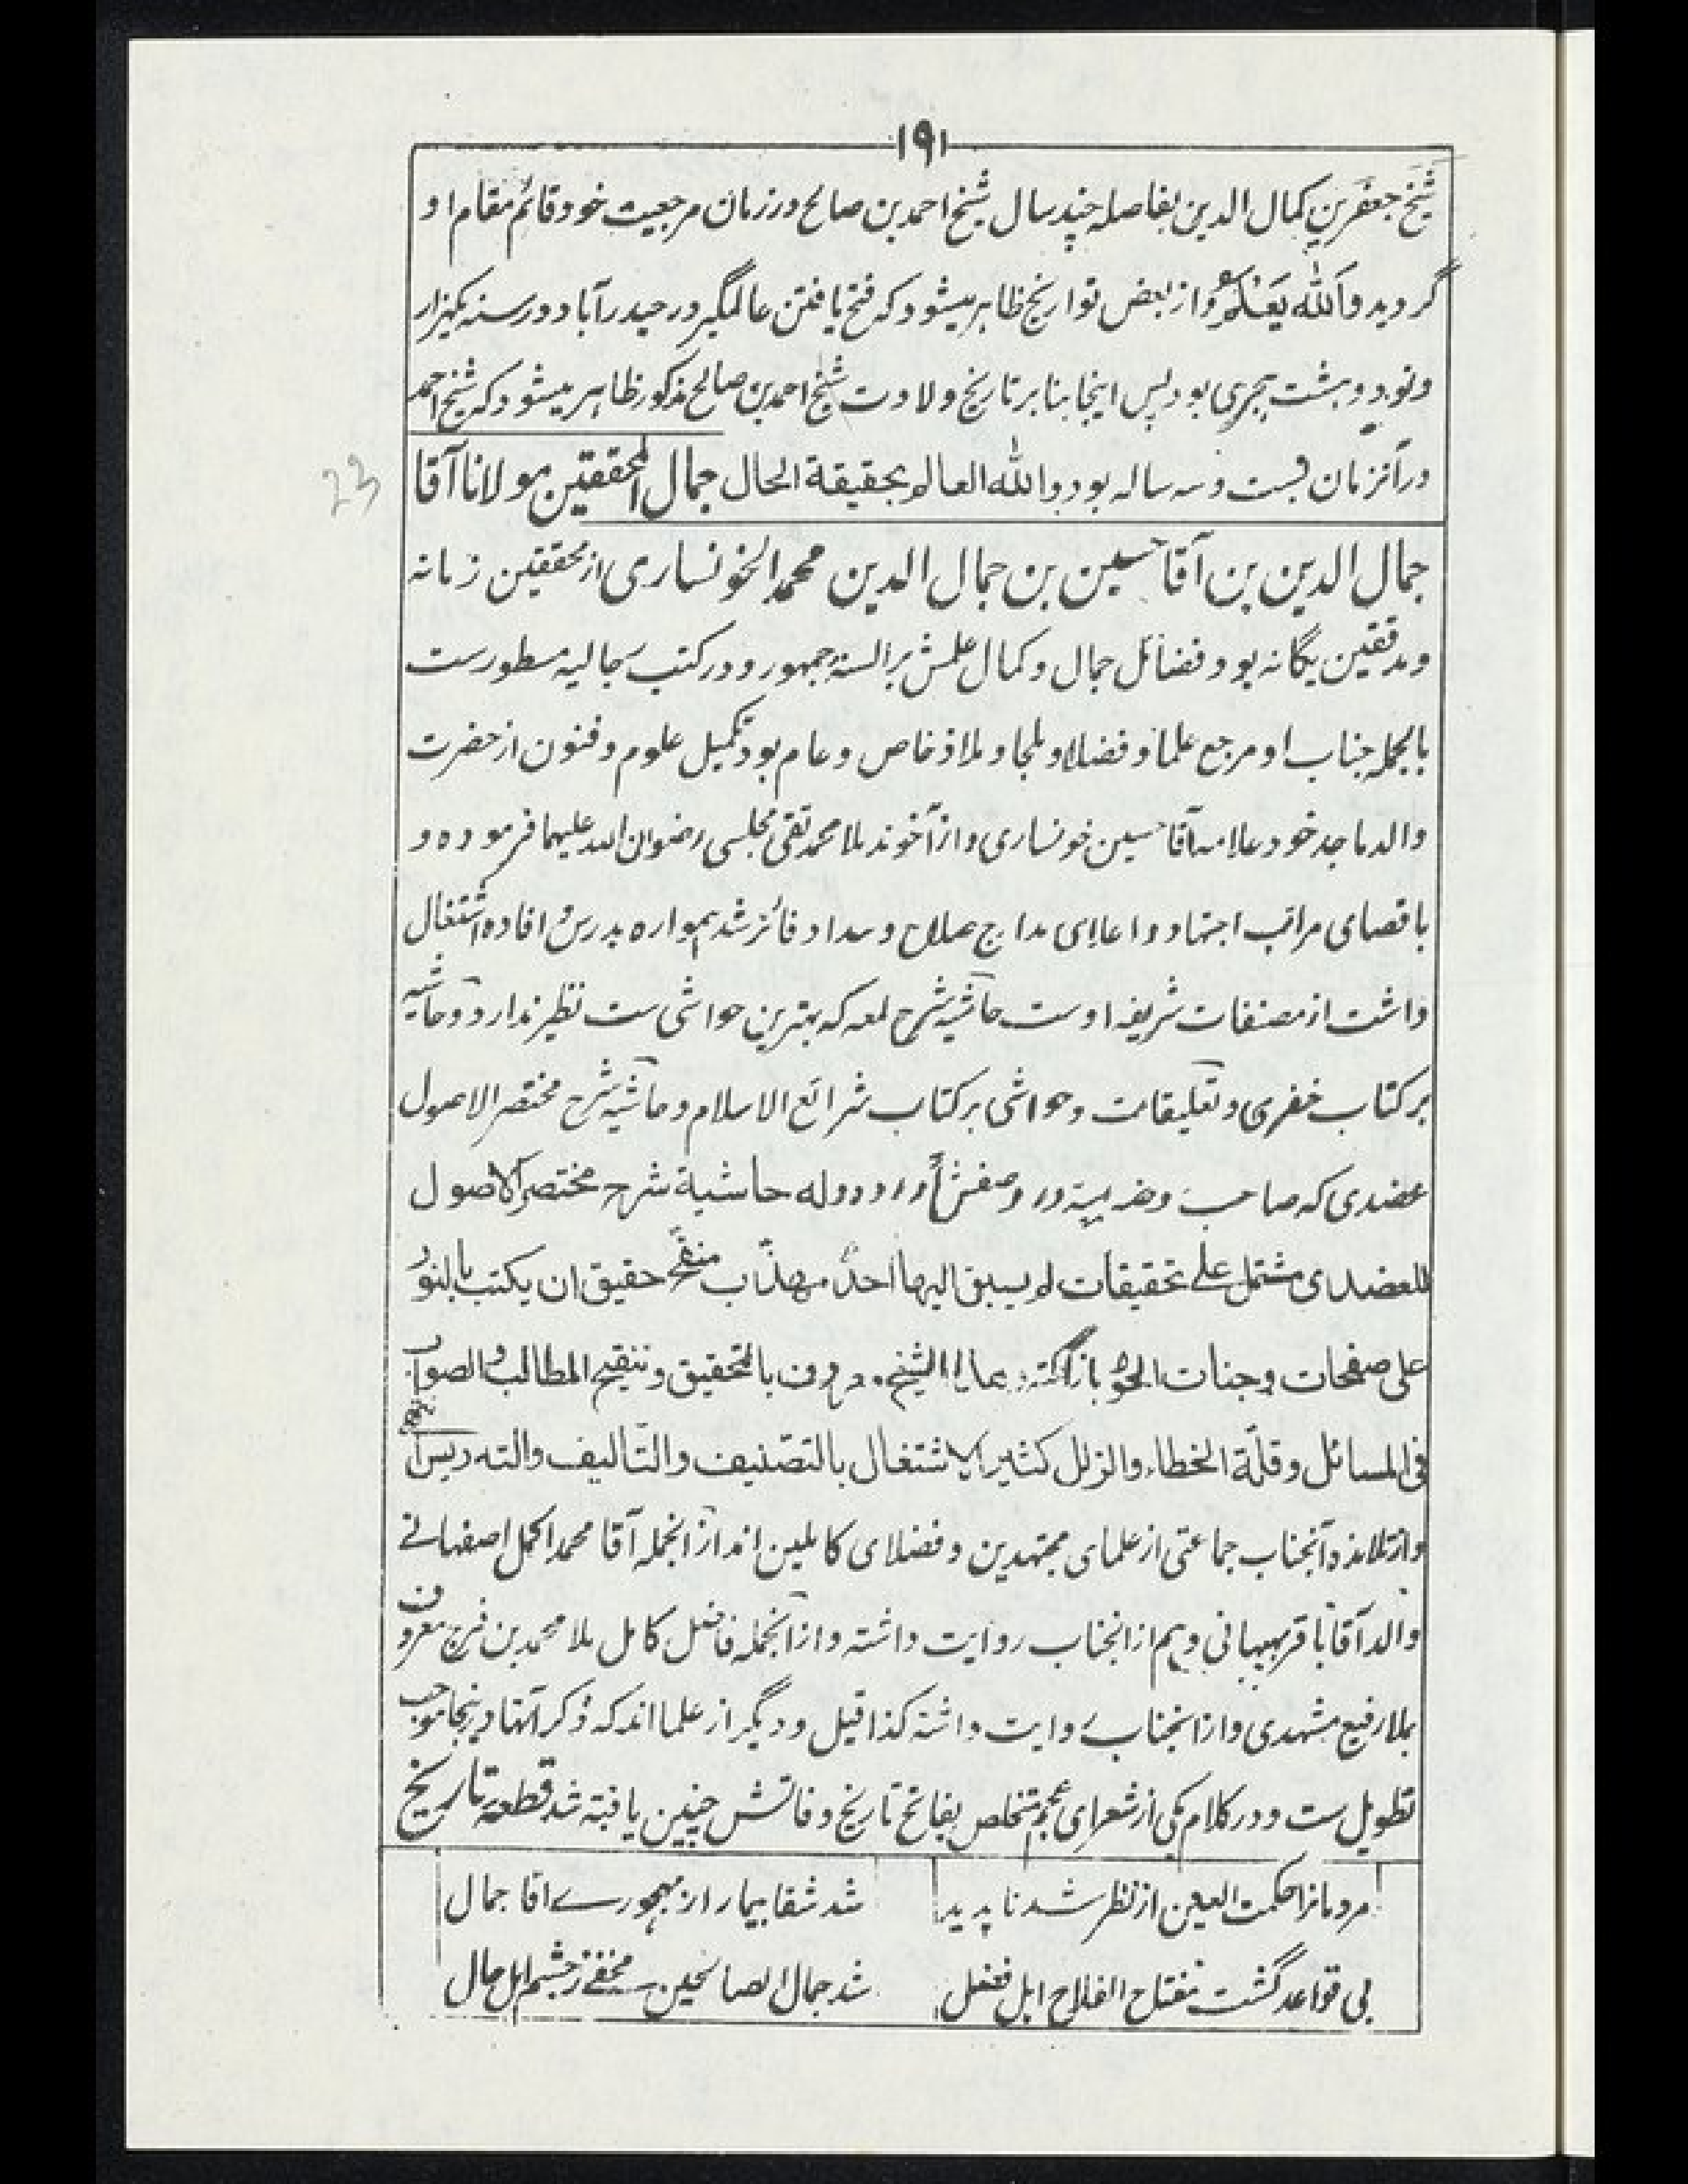 ۱۹۱
شیخ جعفر بن کمال الدین بفاصله چند سال شیخ احمد بن صالح در زمان مرجعیت خود قائم مقام او
گردید والله یعلم و از بعض تواریخ ظاهر میشود که فتح یافتن عالمگیر در حیدرآباد در سنه یکهزار
و نود و هشت هجری بود پس اینجا بنا بر تاریخ ولادت شیخ احمد بن صالح مذکور ظاهر میشود که شیخ احمد
در آنزمان بست و سه ساله بود والله العالم بحقیقة الحال جمال المحققین مولانا آقا
23
جمال الدین بن آقا حسین بن جمال الدین محمد الخونساری از محققین زمانه
و مدققین یگانه بود فضائل جمال و کمال علمش بر السنه جمهور و در کتب رجالیه مسطورست
بالجمله جناب او مرجع علما و فضلا و ملجا و ملاذ خاص و عام بود تکمیل علوم و فنون از حضرت
والد ماجد خود علامه آقا حسین خونساری و از آخوند ملا محمد تقی مجلسی رضوان الله علیهما فرموده و
باقصای مراتب اجتهاد و اعلای مدارج صلاح و سداد فائز شد همواره بدرس و افاده اشتغال
داشت از مصنفات شریفه اوست حاشیه شرح لمعه که بهترین حواشی ست نظیر ندارد و حاشیه
بر کتاب خفری و تعلیقات و حواشی بر کتاب شرائع الاسلام و حاشیه شرح مختصر الاصول
عضدی که صاحب در وصفش وله حاشیة شرح مختصر الاصول
للعضدی مشتمل علی تحقیقات لم یسبق الیها احدٌ مهذّب منقّح حقیق ان یکتب بالنور
علی صفحات وجنات الحور الشیخ معروف بالتحقیق و تنقیح المطالب والصواب
فی المسائل و قلّة الخطاء والزلل کثیر الاشتغال بالتصنیف والتالیف والتدریس انتهی
و از تلامذه آنجناب جماعتی از علمای مجتهدین و فضلای کاملین اند از آنجمله آقا محمد اکمل اصفهانے
والد آقا باقر بهبهانی و هم از انجناب روایت داشته و از آنجمله فاضل کامل ملا محمد بن فرج معروف
بملا رفیع مشهدی و از انجناب روایت داشته کذا قیل و دیگر از علما اند که ذکر آنها درینجا موجب
تطویل ست و در کلام یکی از شعرای عجم متخلص بفاتح تاریخ وفاتش چنین یافته شد قطعه تاریخ
مردمانرا حکمت العین از نظر شد ناپدید شد شفا بیمار از مهجورے اقا جمال
بی قواعد گشت مفتاح الفلاح اهل فضل شد جمال الصالحین مخفے ز چشم اهل حال